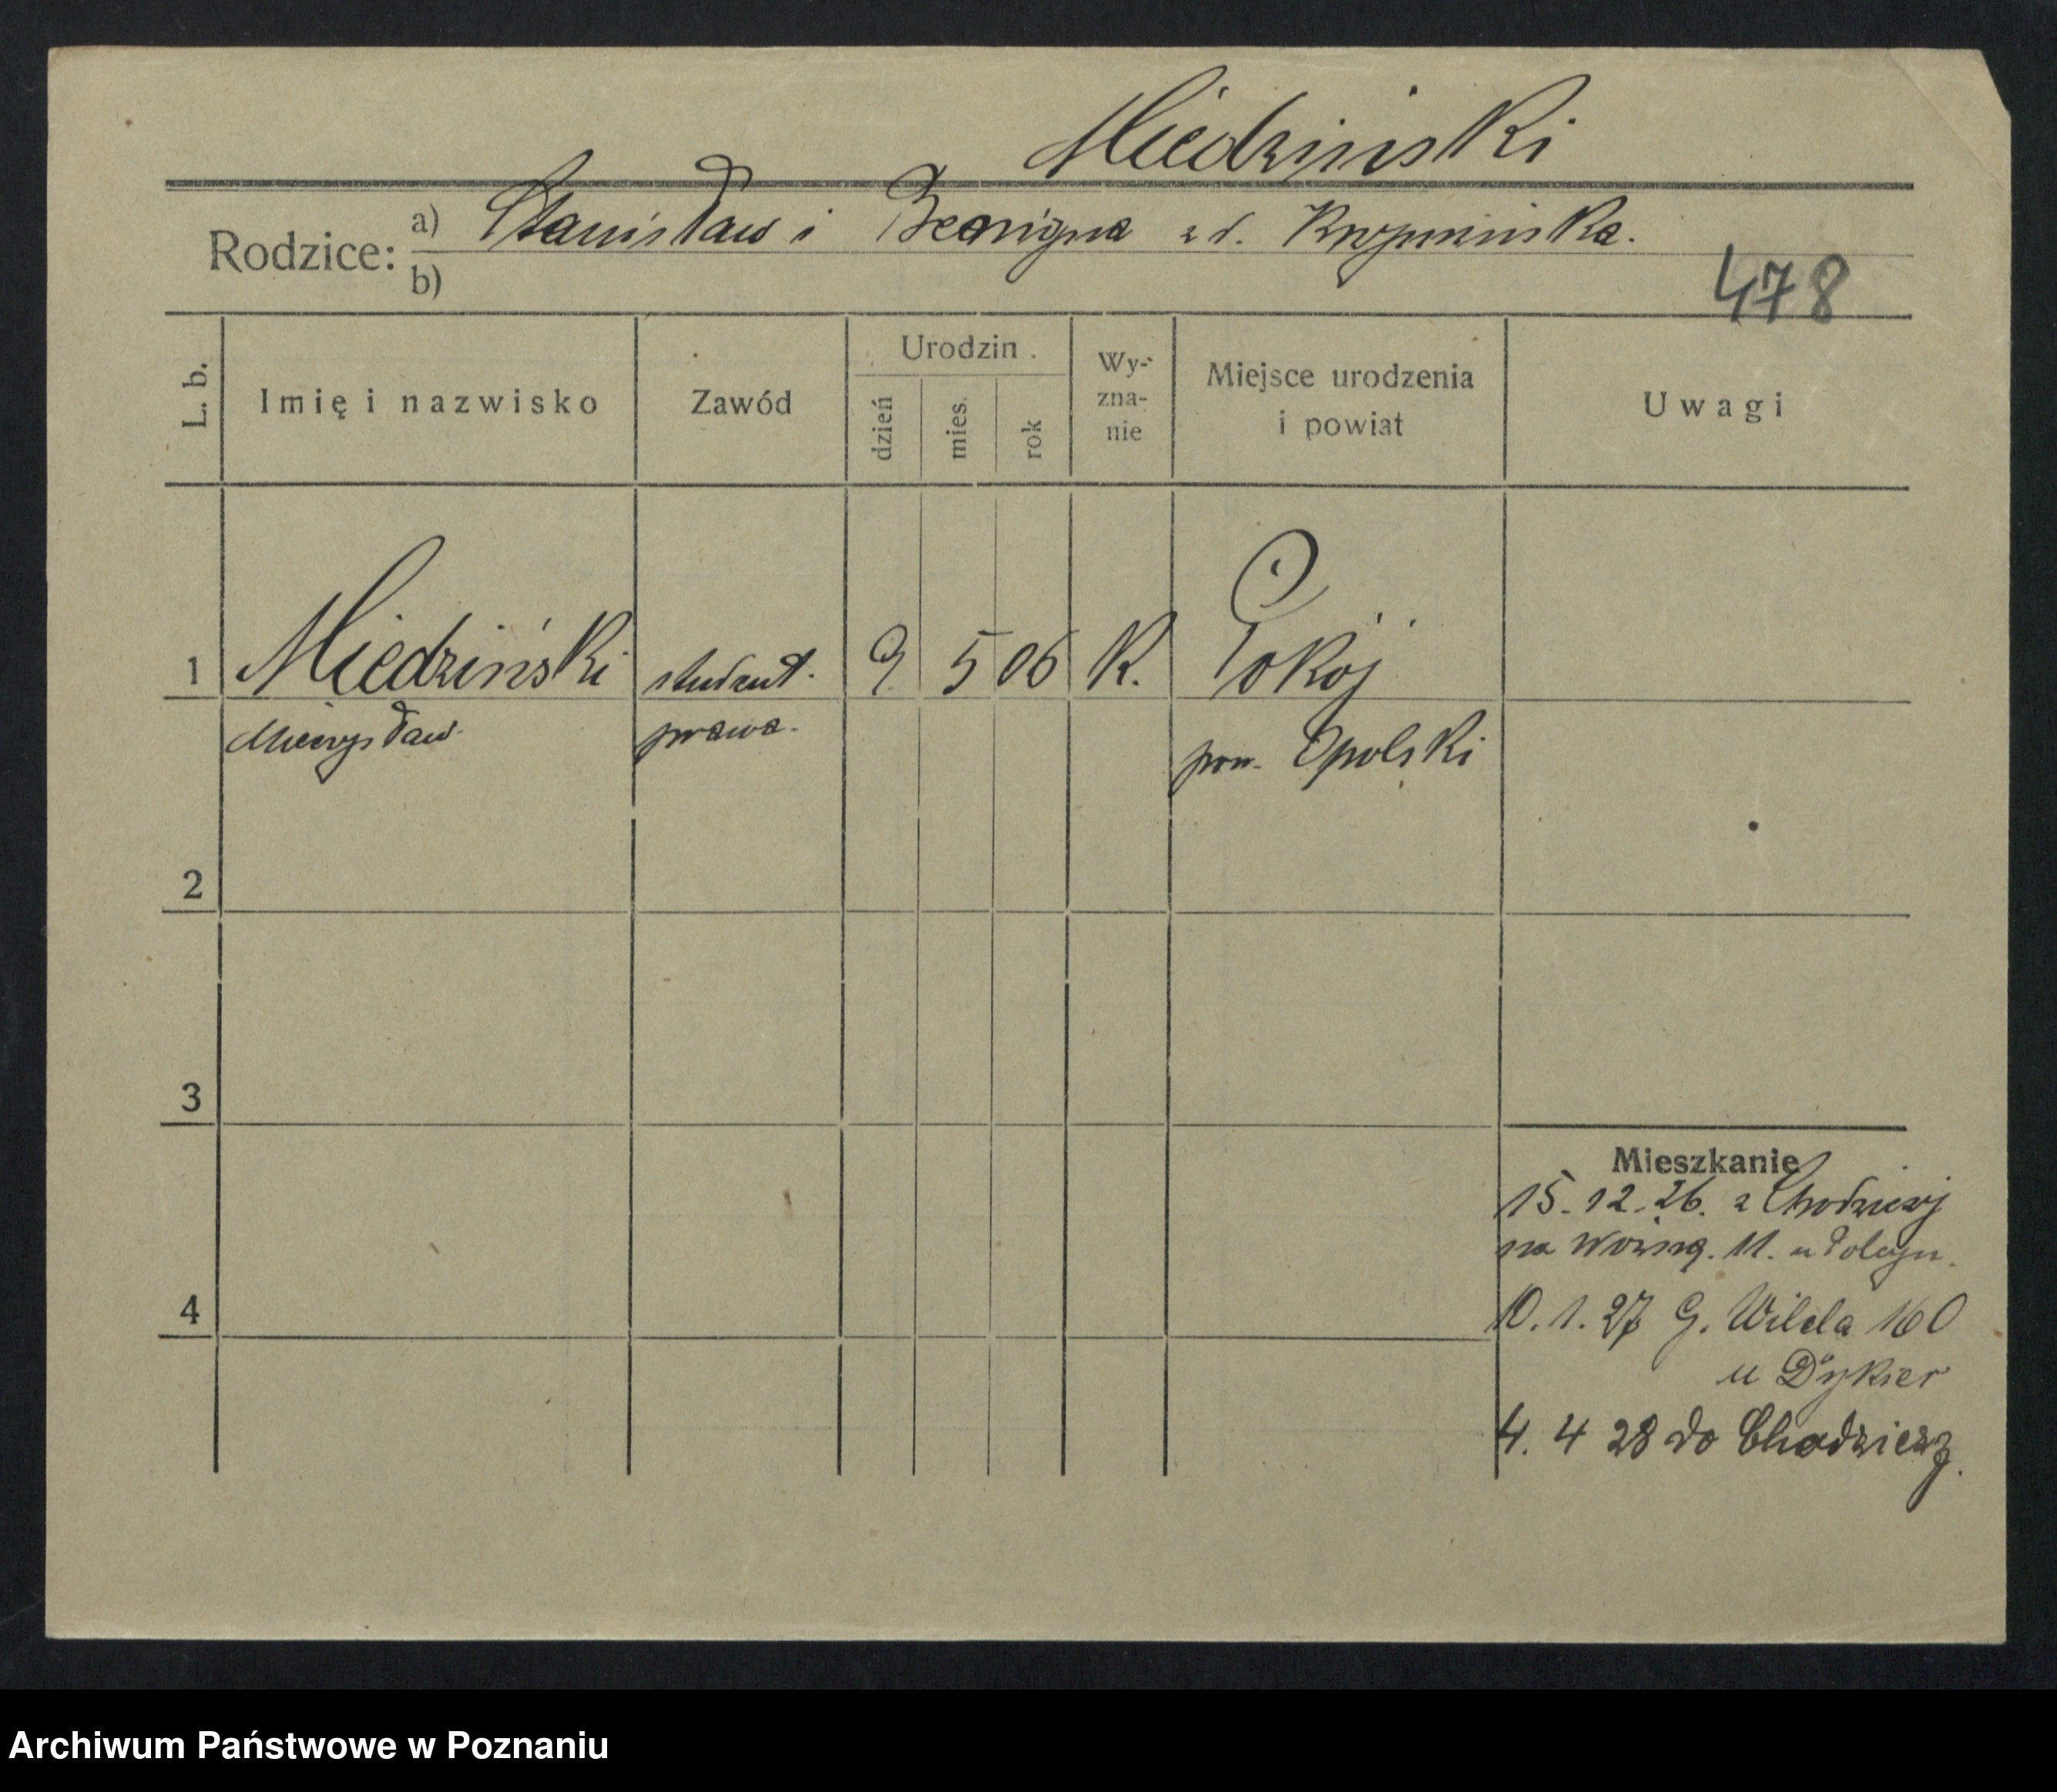 Miedziński
Rodzice: a) Stanisław i Benigna z d.
b)
478
L. b.
Imię i nazwisko
Zawód
Urodzin .
dzień
mies.
rok
Wy-
zna-
nie
Miejsce urodzenia
i powiat
Uwagi
1 Miedziński student. 9 5 06 K. Pokój
Mieczysław prawa. pow. Opolski
2
3
4
Mieszkanie
15. 12. 26. z Chodzieży
na 11. u
10. 1. 27 G. Wilda 160
u Dykier
4. 4 28 do Chodzież.
Archiwum Państwowe w Poznaniu